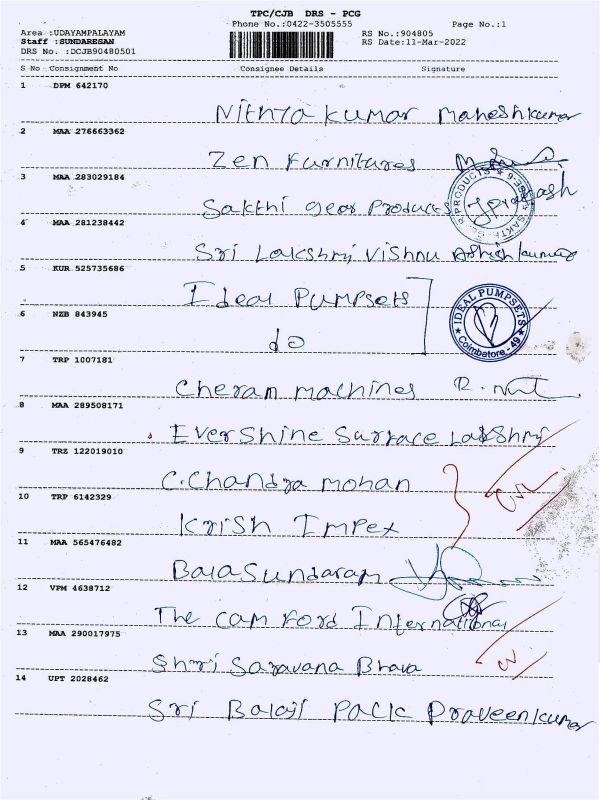 TPC/CJB DRS - PCG
Phone No.:0422-3505555 Page No.:1
Area :UDAYAMPALAYAM RS No.:904805
Staff :SUNDARESAN RS Date:11-Mar-2022
DRS No. :DCJB90480501
S No Consignment No Consignee Details Signature
1 DPM 642170
Nithya kumar Maheshkumar
2 MAA 276663362
Zen Furnitures
3 MAA 283029184
Sakthi Gear Products
4 MAA 281238442
Sri Lakshmi Vishnu Ashishkumar
5 KUR 525735686
Ideal Pumpsets
IDEAL PUMPSETS
Coimbatore - 49
6 NZB 843945
do
7 TRP 1007181
Cheram Machines
8 MAA 289508171
Evershine Surface Lakshmi
9 TRZ 122019010
C.Chandra Mohan
10 TRP 6142329
Krish Impex
11 MAA 565476482
Balasundaram
12 VPM 4638712
The Cam Ford International
13 MAA 290017975
Shri Saravana Bhava
14 UPT 2028462
Sri Balaji Pack Praveenkumar